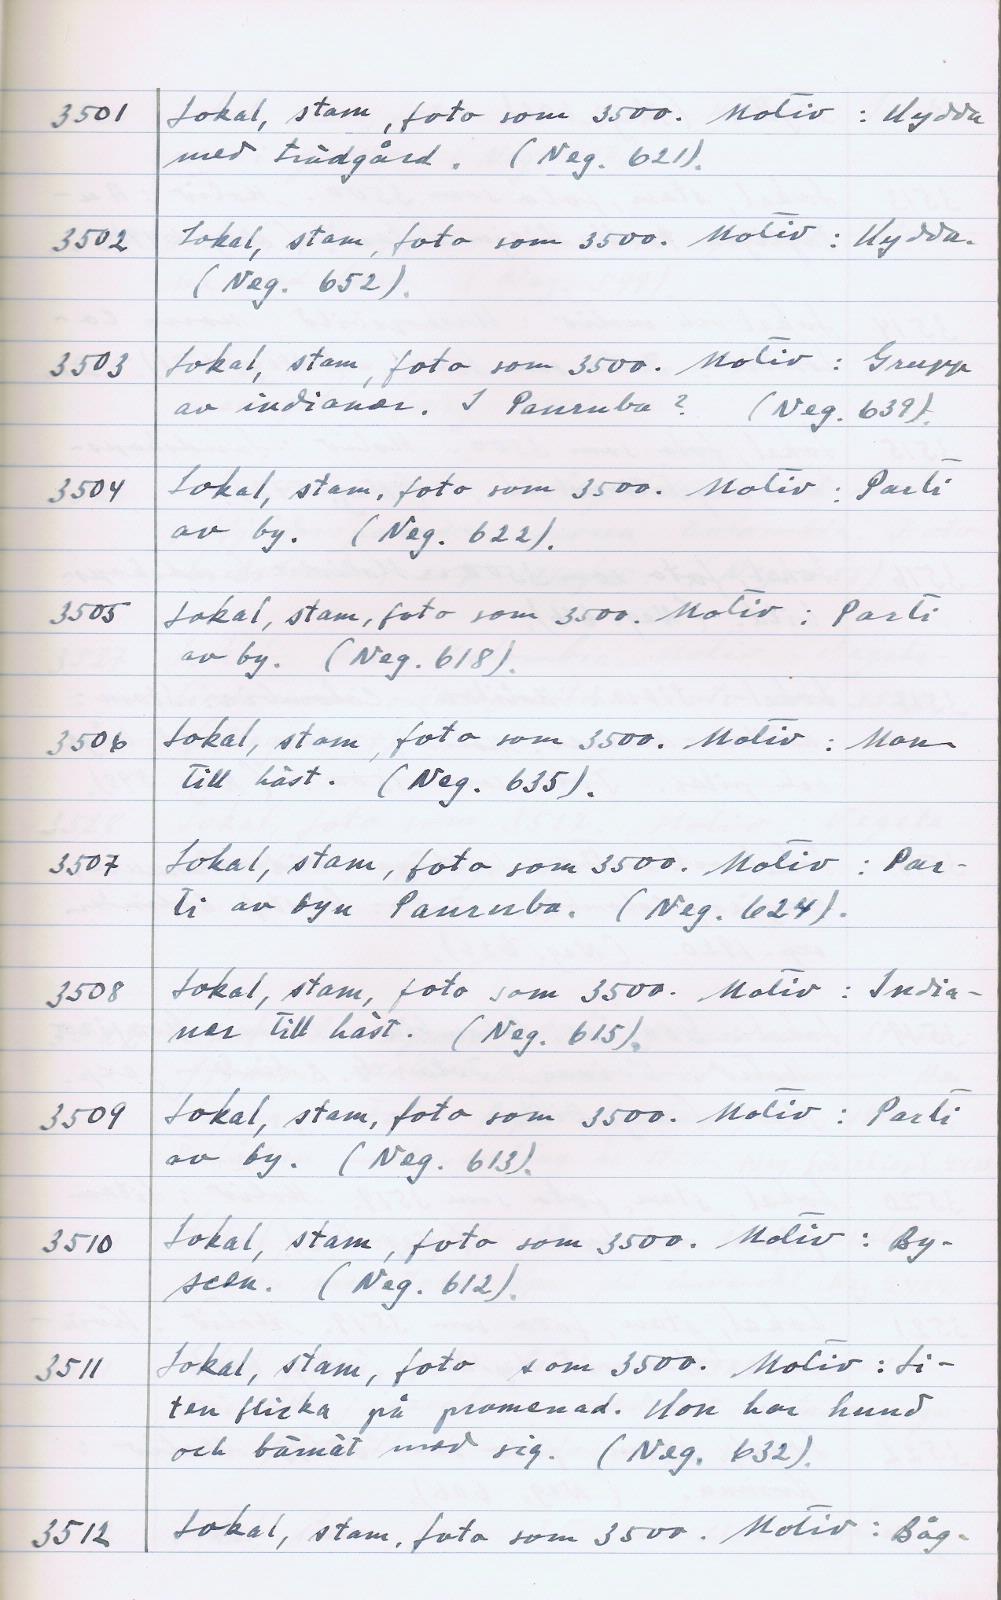 3501 Lokal, stam, foto som 3500. Motiv: Hydda
med trädgård. (Neg. 621).
3502 Lokal, stam, foto som 3500. Motiv: Hydda.
(Neg. 652).
3503 Lokal, stam, foto som 3500. Motiv: Grupp
av indianer. I Pauruba? (Neg. 639).
3504 Lokal, stam, foto som 3500. Motiv: Parti
av by. (Neg. 622).
3505 Lokal, stam, foto som 3500. Motiv: Parti
av by. (Neg. 618).
3506 Lokal, stam, foto som 3500. Motiv: Man
till häst. (Neg. 635).
3507 Lokal, stam, foto som 3500. Motiv: Par-
ti av byn Pauruba. (Neg. 624).
3508 Lokal, stam, foto som 3500. Motiv: India-
ner till häst. (Neg. 615).
3509 Lokal, stam, foto som 3500. Motiv: Parti
av by. (Neg. 613).
3510 Lokal, stam, foto som 3500. Motiv: By-
scen. (Neg. 612).
3511 Lokal, stam, foto som 3500. Motiv: Li-
ten flicka på promenad. Hon har hund
och med sig. (Neg. 632).
3512 Lokal, stam, foto som 3500. Motiv: Båg-